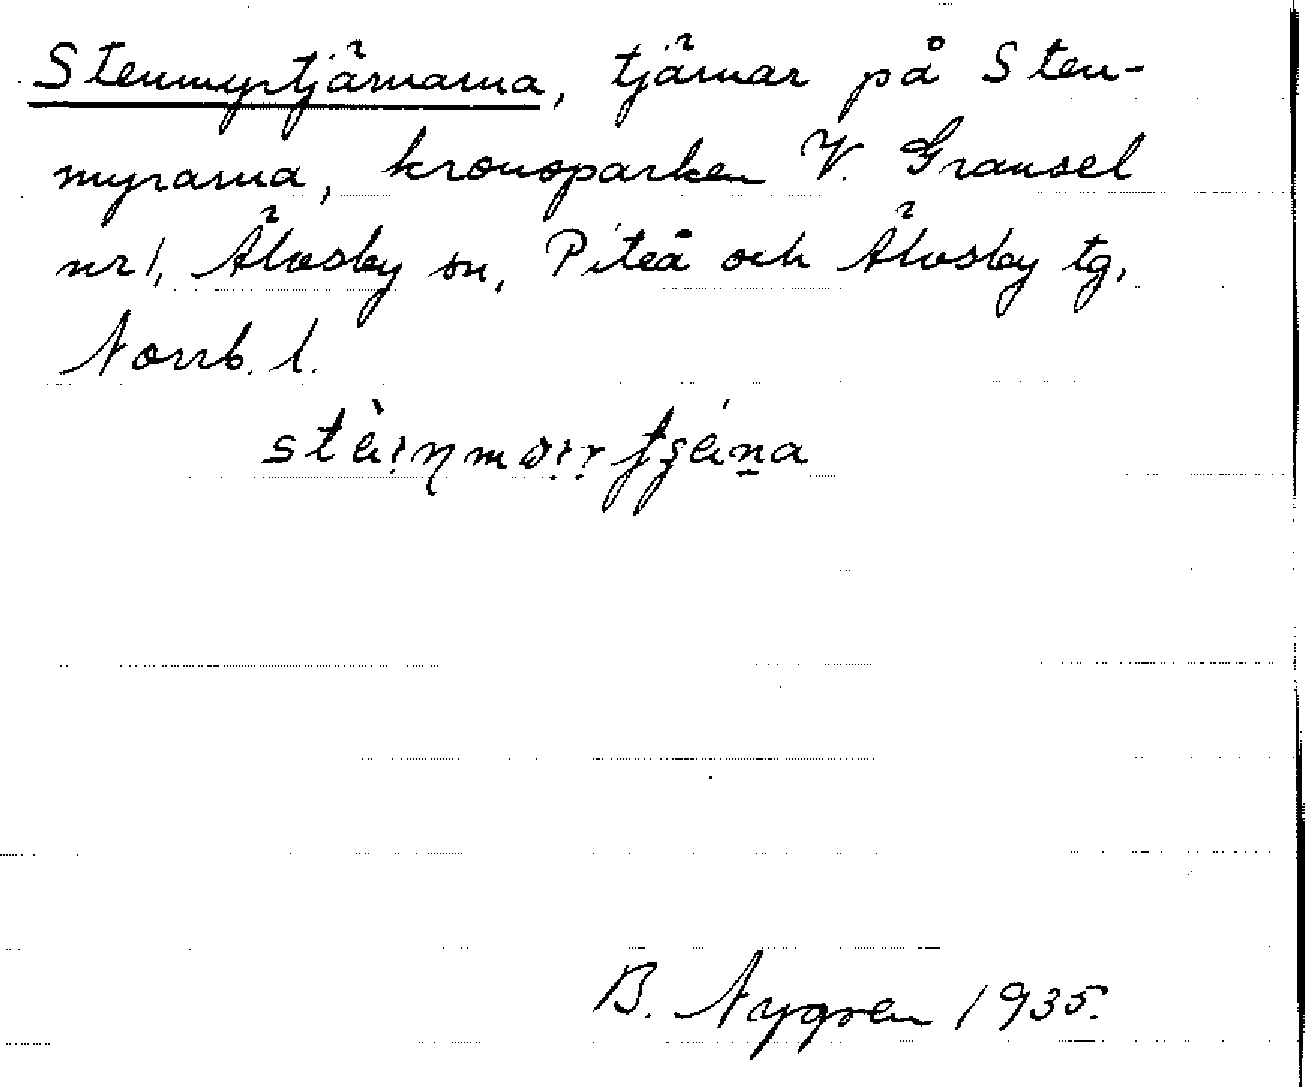 Stenmyrtjärnarna, tjärnar på Sten-
myrarna, kronoparken V. Gransel
nr 1, Älvsby sn, Piteå och Älvsby tg,
Norrb. l.
B. Nygren 1935.